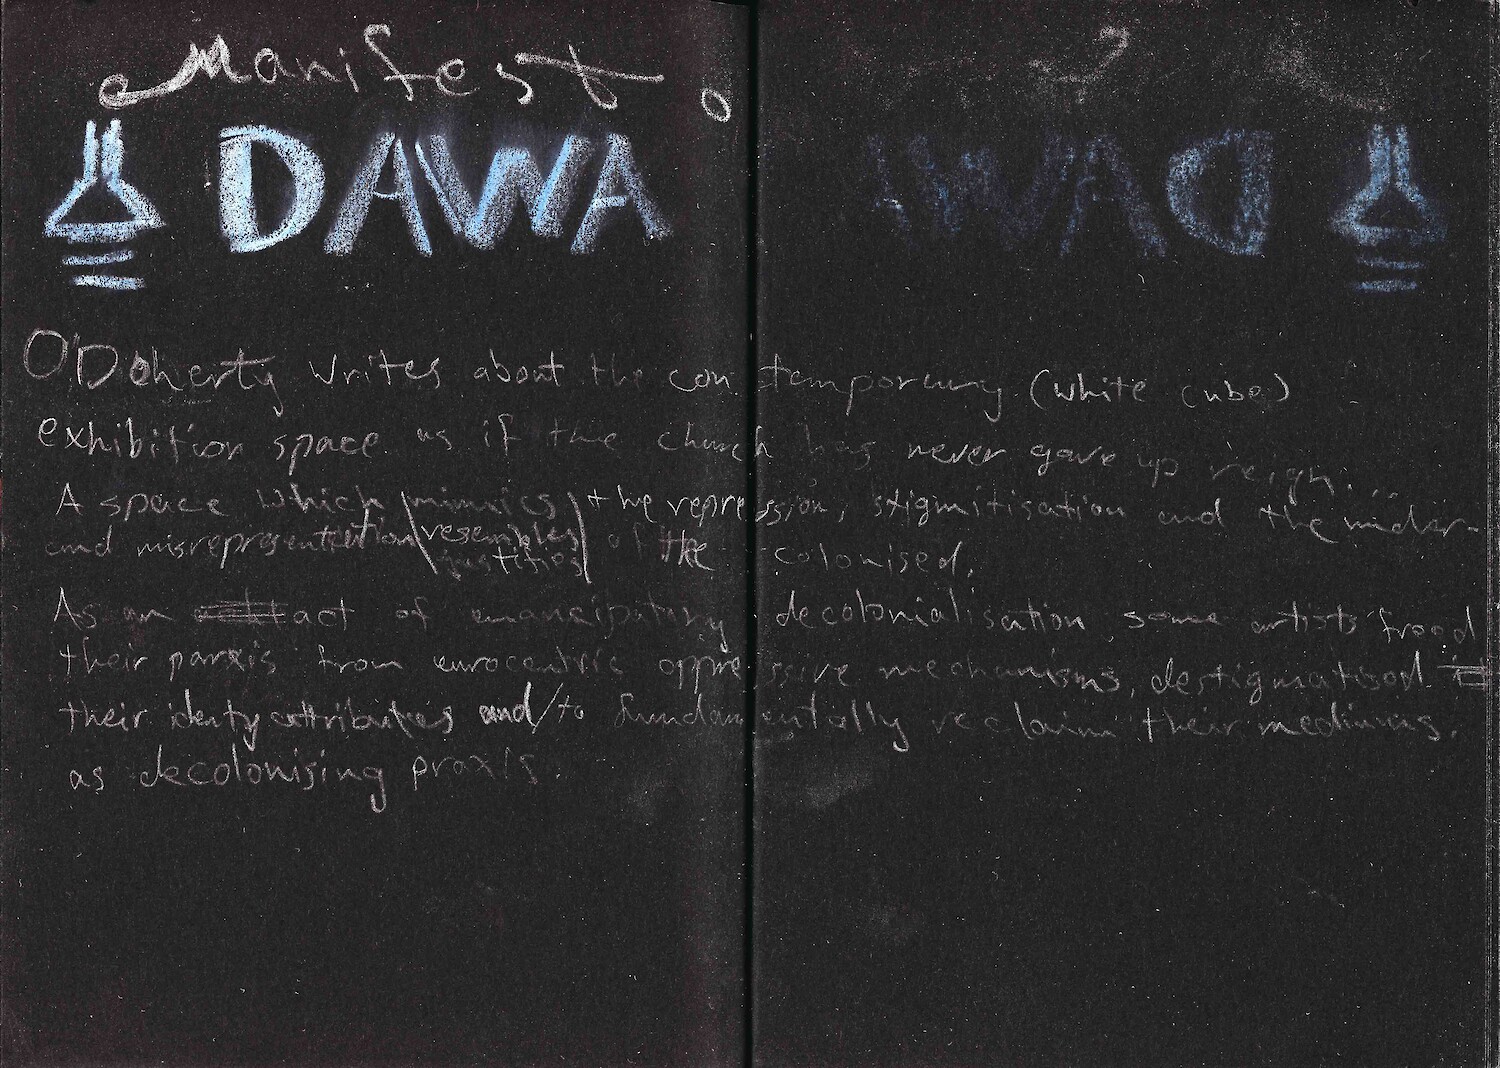 Manifesto
DAWA
O'Doherty writes about the contemporary (white cube)
exhibition space as if the church has never gave up reign.
A space which mimics the repression, stigmitisation and the under-
and misrepresentation resembles justifies of the colonised.
As an act of emancipatory decolonialisation, some artists freed
their parxis from eurocentric oppressive mechanisms, destigmatised
their identy attributes and/to fundamentally reclaim their mediums.
as decolonising praxis.